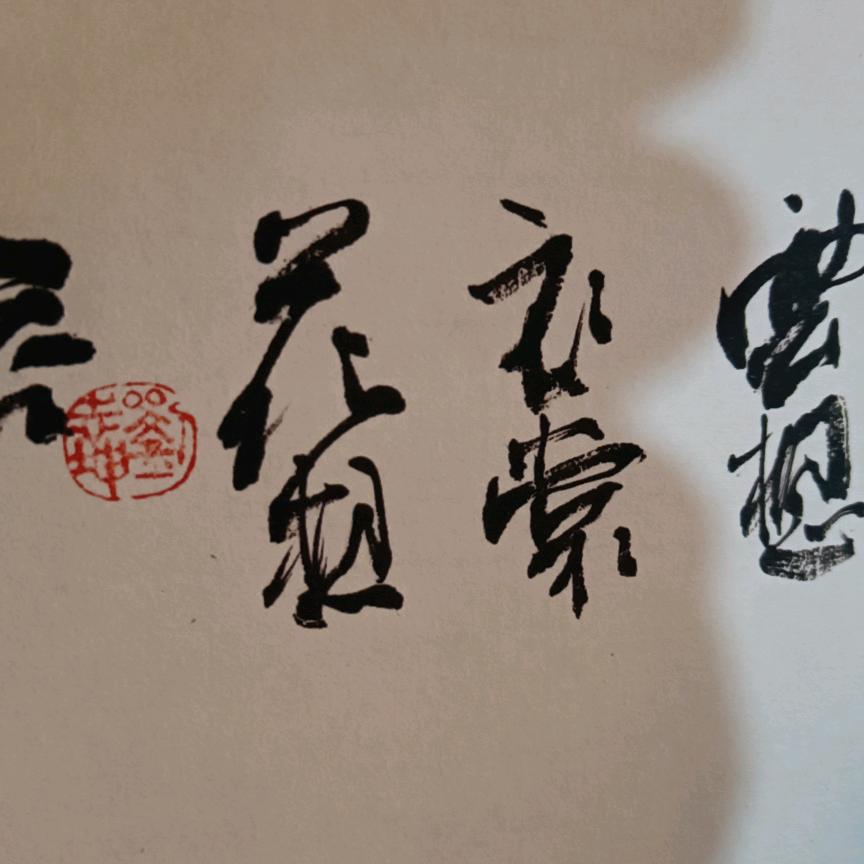 雲想
衣裳
花想
容